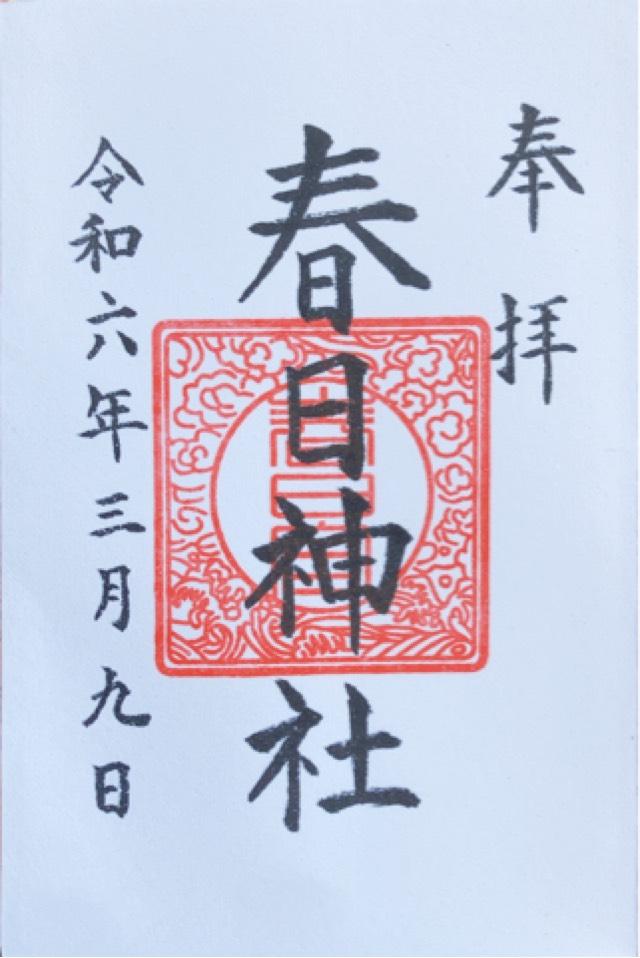 奉拝
春日神社
令和六年三月九日